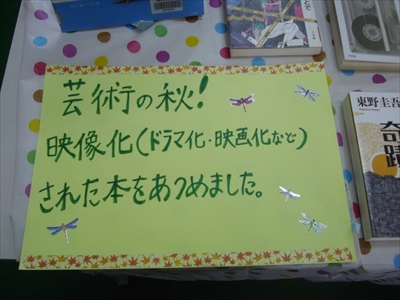 芸術の秋!
映像化(ドラマ化・映画化など)
された本をあつめました。
東野圭吾
奇蹟